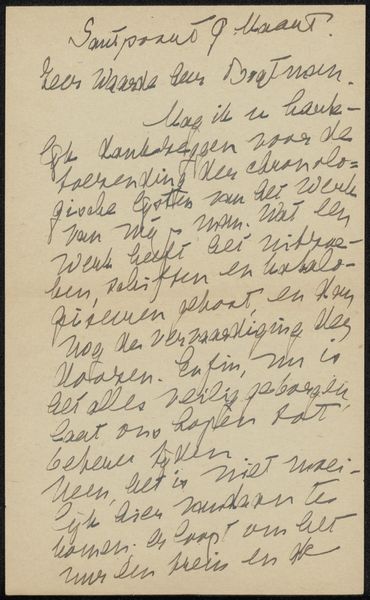 Santpoort 9 Maart.
Zeer Waarde heer Bootman.
Mag ik u harte-
lijk dankzeggen voor de
toezending der chronolo-
gische lijsten van het werk
van mijn man. Wat een
werk heeft het uitzoe-
ken, schiften en katalo-
giseeren gekost, en dan
nog de vervaardiging der
doozen. Enfin, nu is
het alles veilig geborgen,
laat ons hopen tot
betere tijden
Neen, het is niet moei-
lijk hier vandaan te
komen. Er loopt om het
uur een trein en ik